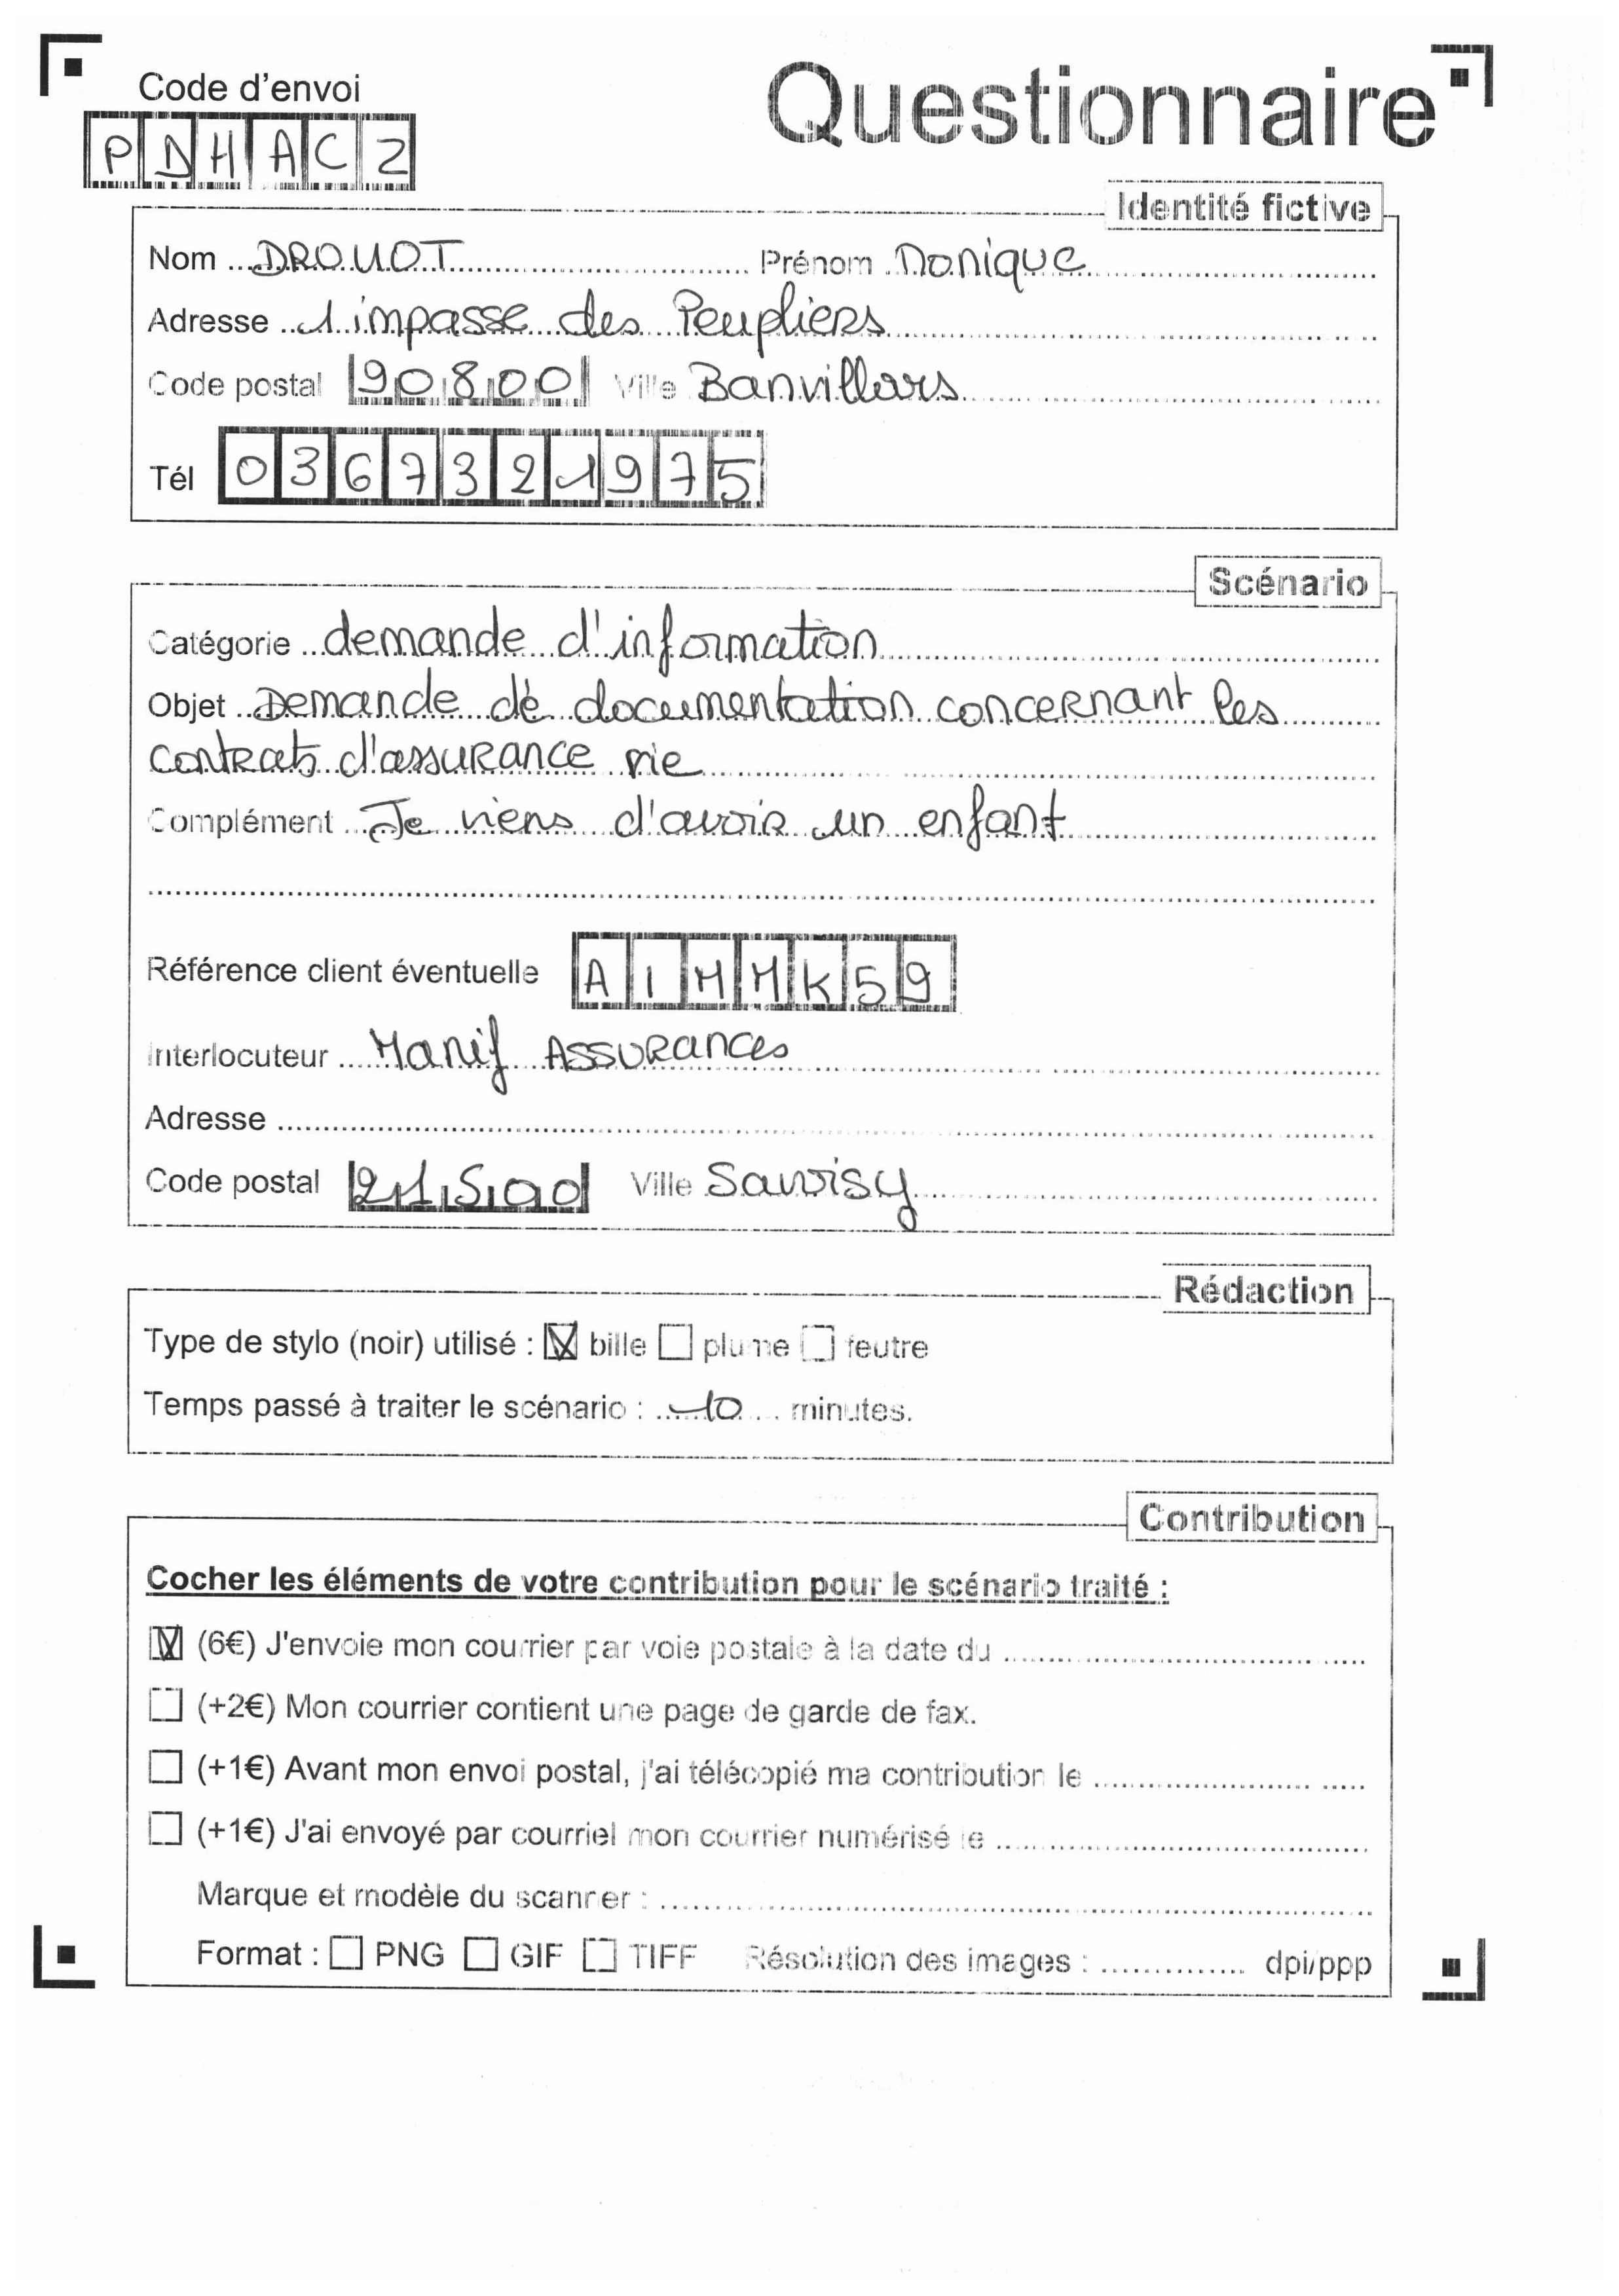 Code d'envoi
Questionnaire
PDHACZ
Identité fictive
Nom DROUOT Prénom Monique
Adresse 1 impasse des Peupliers
Code postal 90800 Ville Banvillars
Tél 0367321975
Scénario
Catégorie demande d'information
Objet Demande de documentation concernant les
contrats d'assurance vie
Complément Je viens d'avoir un enfant
Référence client éventuelle AIMMK59
Interlocuteur Manif Assurances
Adresse
Code postal 21500 Ville Savoisy
Rédaction
Type de stylo (noir) utilisé : bille plume feutre
Temps passé à traiter le scénario : 10 minutes.
Contribution
Cocher les éléments de votre contribution pour le scénario traité :
(6€) J'envoie mon courrier par voie postale à la date du
(+2€) Mon courrier contient une page de garde de fax.
(+1€) Avant mon envoi postal, j'ai télécopié ma contribution le
(+1€) J'ai envoyé par courriel mon courrier numérisé le
Marque et modèle du scanner :
Format : PNG GIF TIFF Résolution des images : dpi/ppp